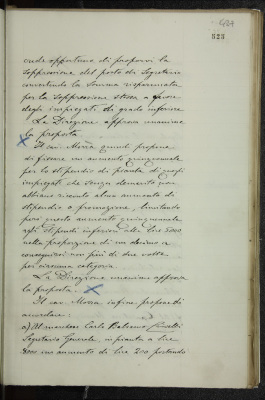 484
523
crede opportuno di proporre la
soppressione del posto di Segretario
convertendo la somma risparmiata
per la soppressione stessa a favore
degli impiegati di grado inferiore
La Direzione approva unanime
la proposta.
Il cav. Mozza quindi propone
di fissare un aumento quinquennale
per lo stipendio di pianta di quegli
impiegati che senza demerito non
abbiano ricevuto alcun aumento di
stipendio o promozione, limitando
però questo aumento quinquennale
agli stipendi inferiori alle lire 5000
nella proporzione di un decimo e
conseguirsi non più di due volte
per ciascuna categoria.
La Direzione unanime approva
la proposta.
Il cav. Mozza infine propone di
accordare:
a) Al marchese Carlo
Segretario Generale, in pianta a lire
8000 un aumento di lire 200 portando